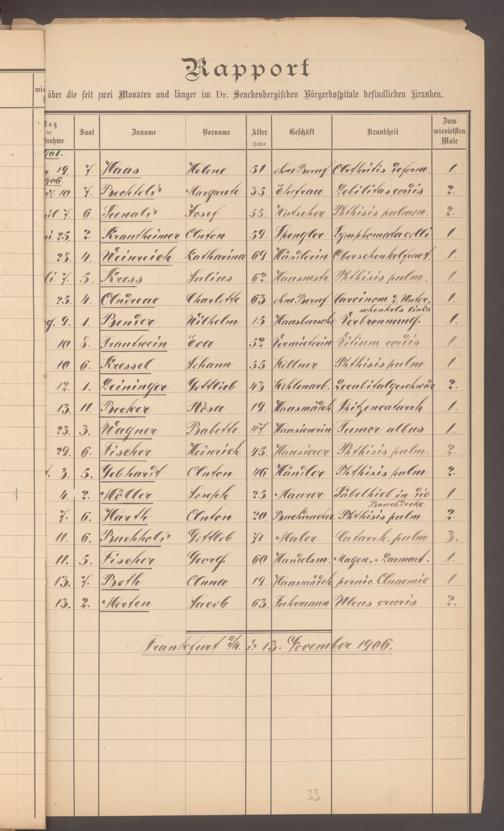 Rapport
über die seit zwei Monaten und länger im Dr. Senckenbergischen Bürgerhospitale befindlichen Kranken.
Saal Zuname Vorname Alter Jahre Geschäft Krankheit Zum wievielsten Male
19. 7. Haas Helene 51 ohne Beruf 1
1906.
10 7. Margarete 35 Ehefrau Debilitas cordis 2.
7. 6. Josef 55 Kutscher Phthisis pulmon. 2.
25. 2. Krautheimer Anton 59 Spengler Lymphomata colli 1.
28. 4. Weinreich Katharina 64 Händlerin Oberschenkelfract. 1.
7. 5. Kress Julius 62 Hausmstr. Phthisis pulm. 1.
25. 4. Andreae Charlotte 63 ohne Beruf Carcinom 1.
9. 1. Bender Wilhelm 15 Hausbursche Verbrennung. 1.
10 8. Trautwein Eva 52 Vermieterin Vitium cordis 1.
10 6. Kressel Johann 55 Kellner Phthisis pulm 1.
12. 1. Leininger Gottlieb 43 Kohlenarb. 2.
13. 11. Becker Rosa 19. Hausmädch. Spitzencatarrh 1.
23. 3. Wagner Babette 47 Tumor albus 1.
29. 6. Fischer Heinrich 45 Phthisis pulm. 2.
3. 5. Gebhardt Anton 46 Händler Phthisis pulm 2.
4. 2. Möller Joseph 25 Maurer in die Bauchdecke 1
7. 6. Harth Anton 20 Phthisis pulm 2.
11. 6. Buchholz Gottlob 71 Maler Catarrh. pulm 3.
11. 5. Fischer Georg. 60 Handelsm. Magen- u. Darmcat. 1.
13. 7. Roth Anna 19. Hausmädch pernic. Anaemie 1
13. 2. Morten Jacob 63. Fuhrmann Ulcus cruris 2.
Frankfurt a/M. d. 13. November 1906.
33